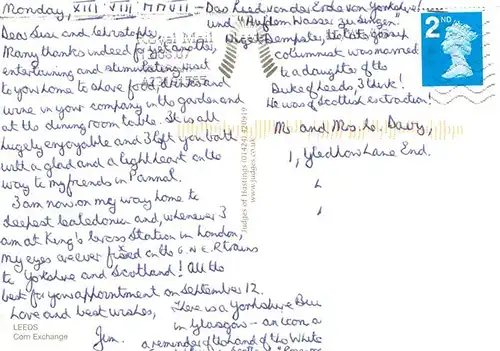 Monday, XIII VIII MMVII
Dear Susi and Christopher,
Many thanks indeed for yet another,
entertaining and stimulating visit
to your home to share food, drinks and
wine in your company in the garden and
at the dining room table. It is all
hugely enjoyable and I left you both
with a glad and a light heart on the
way to my friends in Pannal.
I am now on my way home to
deepest Caledonia and, whenever I
am at King's Cross Station in London,
my eyes are ever fixed on the G.N.E.R trains
to Yorkshire and Scotland! All the
best for your appointment on September 12.
Love and best wishes,
Jim.
There is a Yorkshire
in Glasgow - an icon
a reminder of the land of the White
Das Lied von der Erde von Yorkshire!
und "Auf dem Wasser zu singen"
Nigel Dempster, the late gossip
columnist was married
to a daughter of the
Duke of Leeds, I think!
He was of Scottish extraction!
Royal Mail
2ND
M and Mrs. Davy,
1, Gledhow Lane End.
Judges of Hastings (01424) 420919
www.judges.co.uk
LEEDS
Corn Exchange